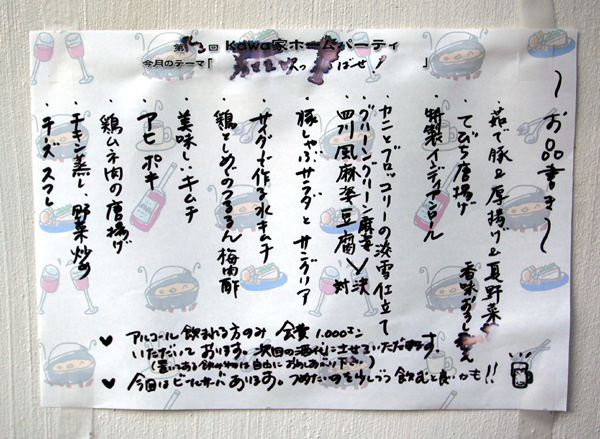 第 回 Kawa家ホームパーティ
今月のテーマ「 ばせ 」
〜お品書き〜
・茹で豚&厚揚げ&夏野菜
香味おろし
・てびち唐揚げ
・特製インディアンロール
・カニとブロッコリーの淡雪仕立て
・グリーングリーン麻婆
四川風麻婆豆腐 対決
・豚しゃぶサラダとサングリア
・サイダーで作る水キムチ
・鶏ささしめでのつるるん梅肉酢
・美味し、キムチ
・アヒポキ
・鶏ムネ肉の唐揚げ
・チキン蒸し、野菜炒め
・チーズスフレ
♥ アルコール飲まれる方のみ 会費1.000キン
いただいております。次回の酒代にさせていただきます
(置いてある飲み物は自由にお飲みあがり下さい)
♥ 今回はビールサーバあります。つめたいのを少しづつ飲むと良いかも!!